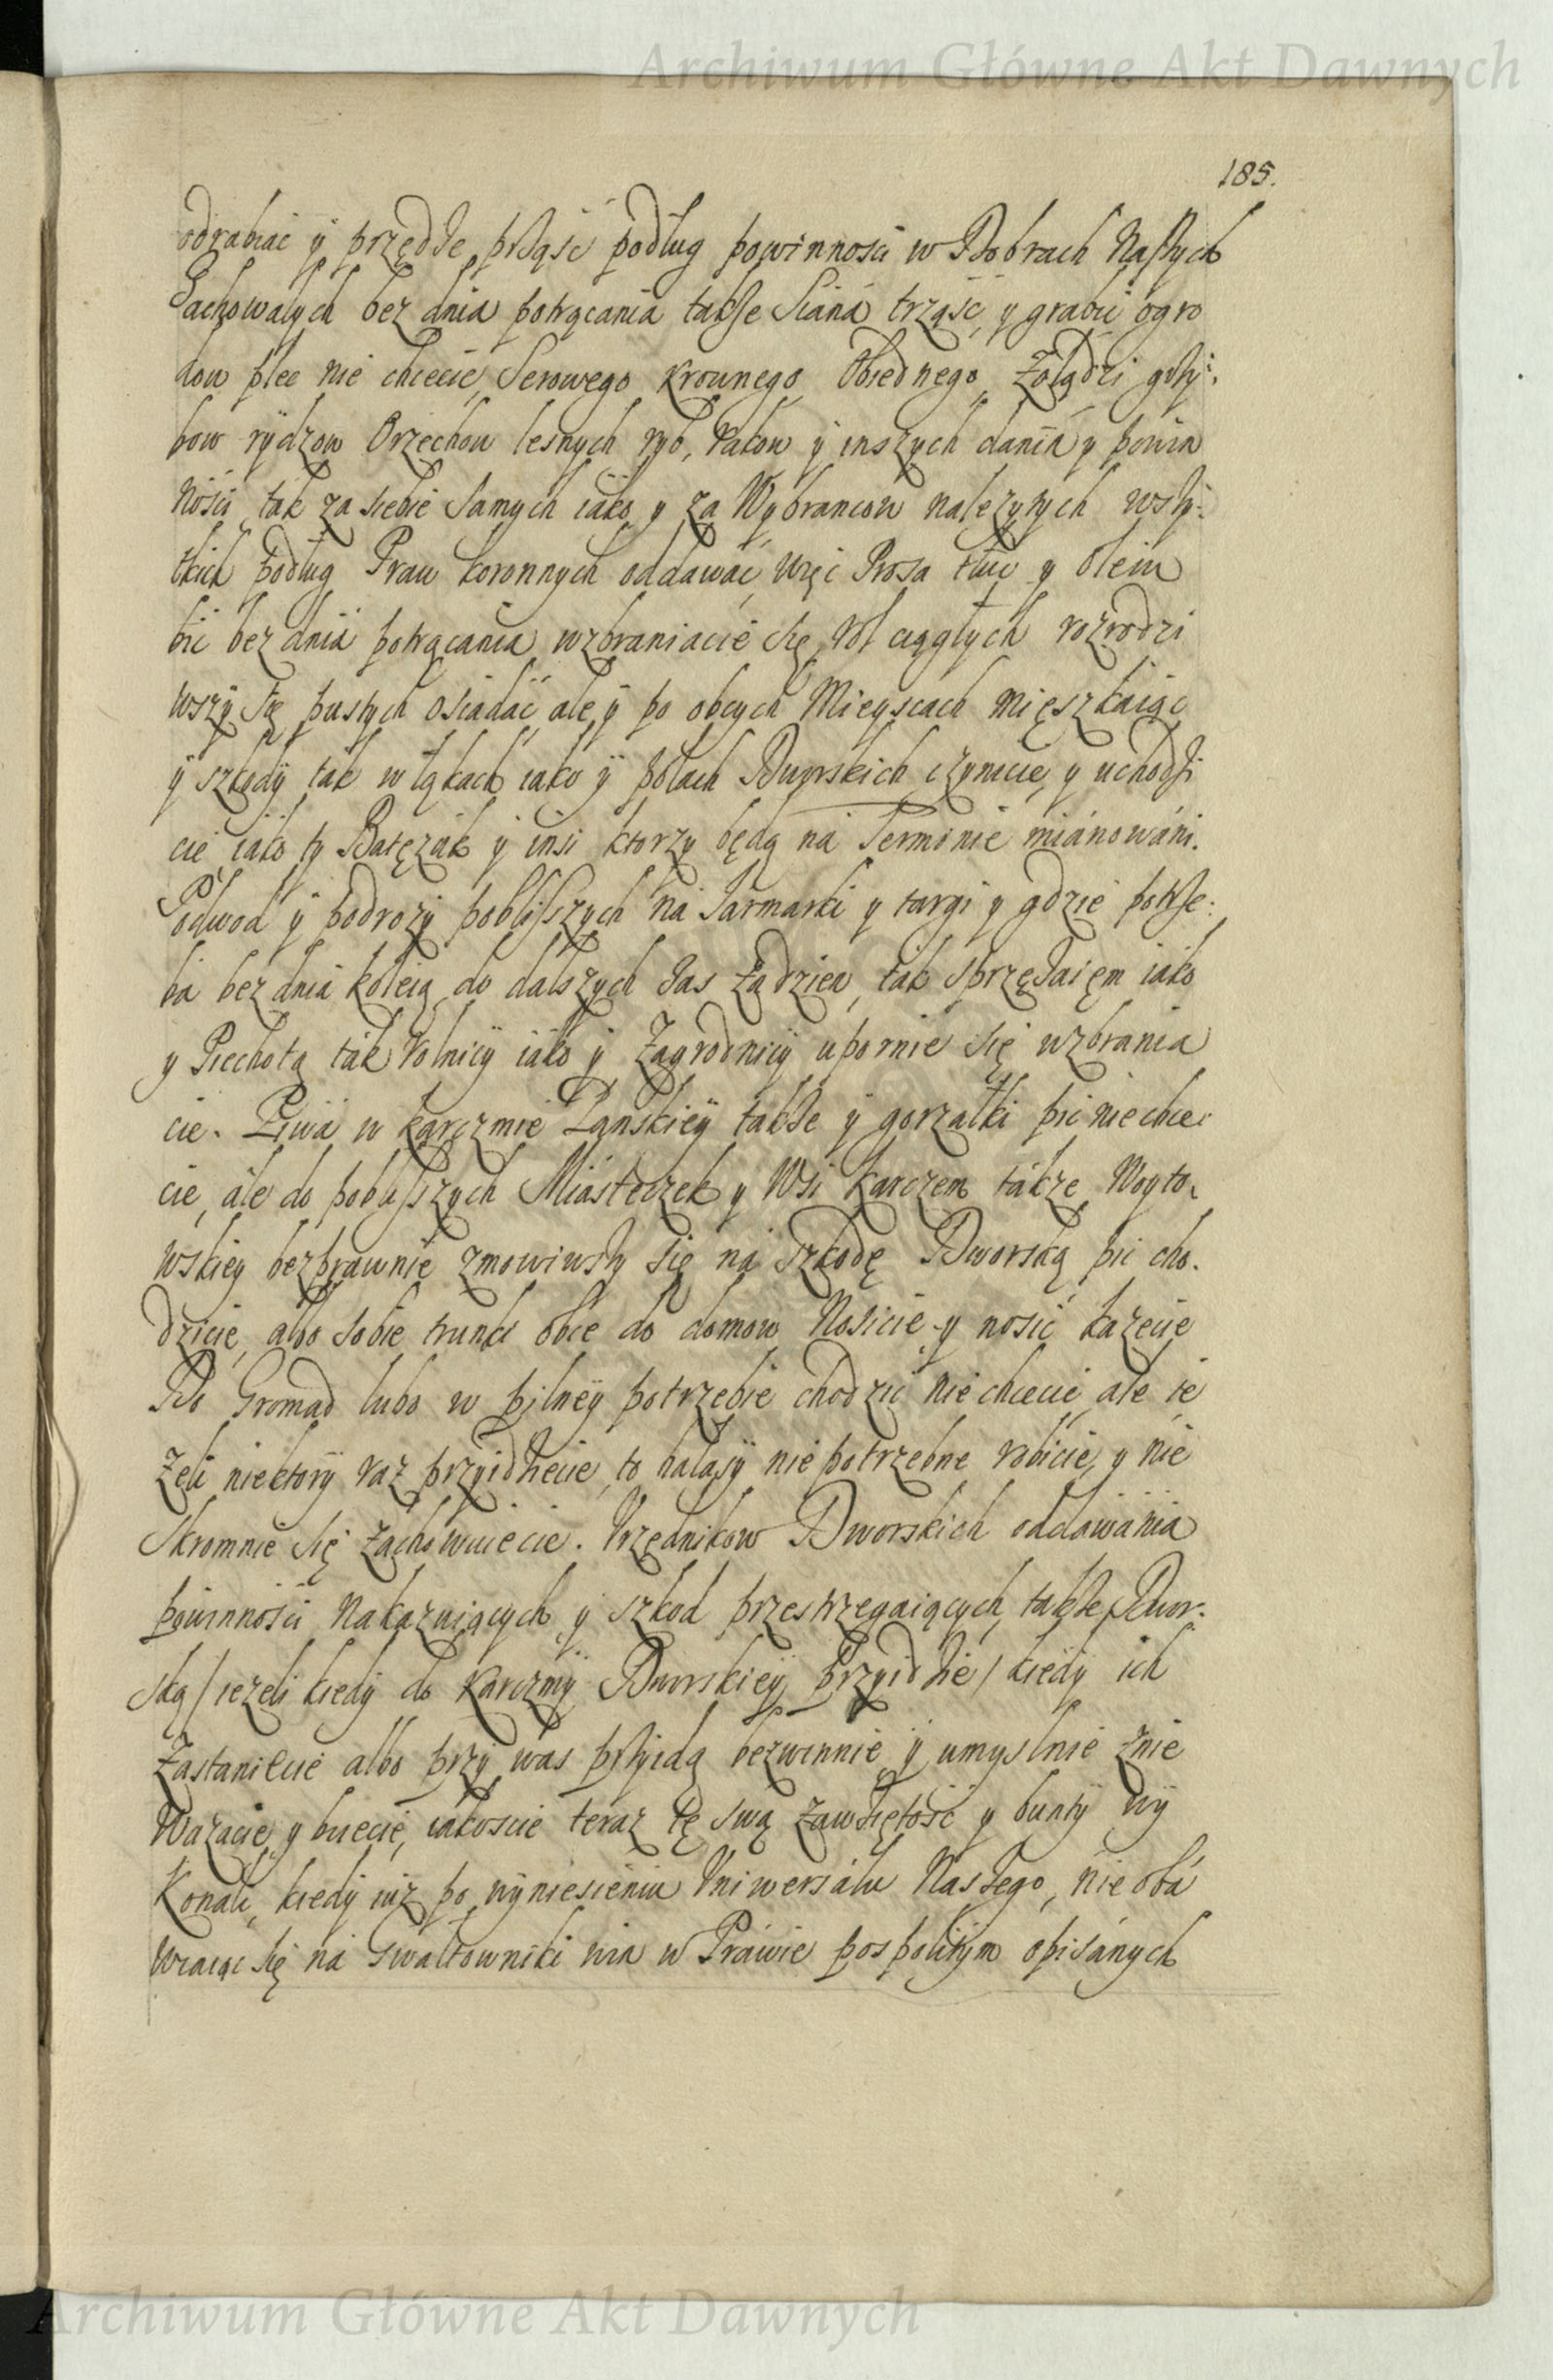 Archiwum Główne Akt Dawnych
185.
odrabiać ÿ przędże prząść podług powinnosci w Dobrach Naszych
Zachowałych bez dnia potrącania także Siana trząść y grabić ogro
dow plec nie chcecie, Serowego krownego Obiednego, Żołądzi grzÿ:
bow rÿdzow Orzechow lesnych ryb, Rakow ÿ inszych danin y powin
nosci tak za siebie Samych iako y za Wybrancow należytych wszy:
tkich podług Praw koronnych oddawać, więc Prosa tłuc y Oleiu
bic bez dnia potrącania wzbraniacie się, Rol ciągłych rozrodzi
wszÿ się pustych osiadać, ale ÿ po obcych Mieyscach mięszkaiąc
ÿ szkodÿ tak w łąkach iako ÿ polach Dworskich czynicie, y uchodzi
cie iako ty Batęzak ÿ insi ktorzy będą na Terminie mianowani.
Podwod ÿ podrożÿ pobliszszych na Jarmarki y targi y gdzie potrze:
ba bez dnia koleią do dalszych zas za dzien, tak sprzężaięm iako
y Piechotą tak Rolnicÿ iako ÿ Zagrodnicÿ upornie się wzbrania
cie. Piwa w karczmie Panskieÿ także ÿ gorzałki pic niechce:
cie, ale do pobliszszych Miasteczek y Wsi karczem także Woyto
wskiey bezprawnie zmowiwszy się na szkodę Dworską pic cho.
dzicie, albo sobie trunki obce do domow Nosicie y nosić każecie
Do Gromad lubo w pilneÿ potrzebie chodzić nie chcecie, ale ie
żeli niektorÿ raz przyidziecie, to hałasÿ nie potrzebne robicie, y nie
skromnie się zachowuiecie. Urzędnikow Dworskich oddawania
powinnosci Nakazuiących y szkod przestrzegaiących, także Dwor:
ską / ieżeli kiedÿ do karczmÿ Dworskieÿ przyidzie / kiedÿ ich
Zastaniecie albo przy was przÿidą bezwinnie ÿ umyslnie znie
ważacie y biiecie, iakoscie teraz tę swą zawziętość y buntÿ wÿ
konali, kiedÿ iuż po wÿniesieniu Uniwersału Naszego, nie oba
wiaiąc się na Gwałtowniki win w Prawie pospolitÿm opisanych
Archiwum Główne Akt Dawnych